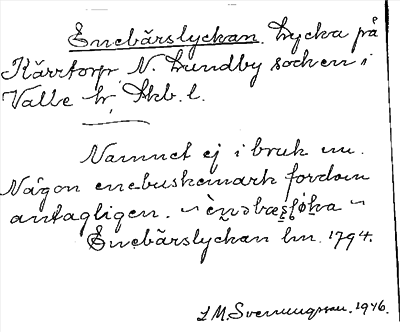 Enebärslyckan. Lycka på
Kärrtorp, N. Lundby socken i
Valle hr, Skb. l.
Namnet ej i bruk nu.
Någon enebuskemark fordom
antagligen.
Enebärslyckan lm. 1794.
L M. Svenungsson. 1946.